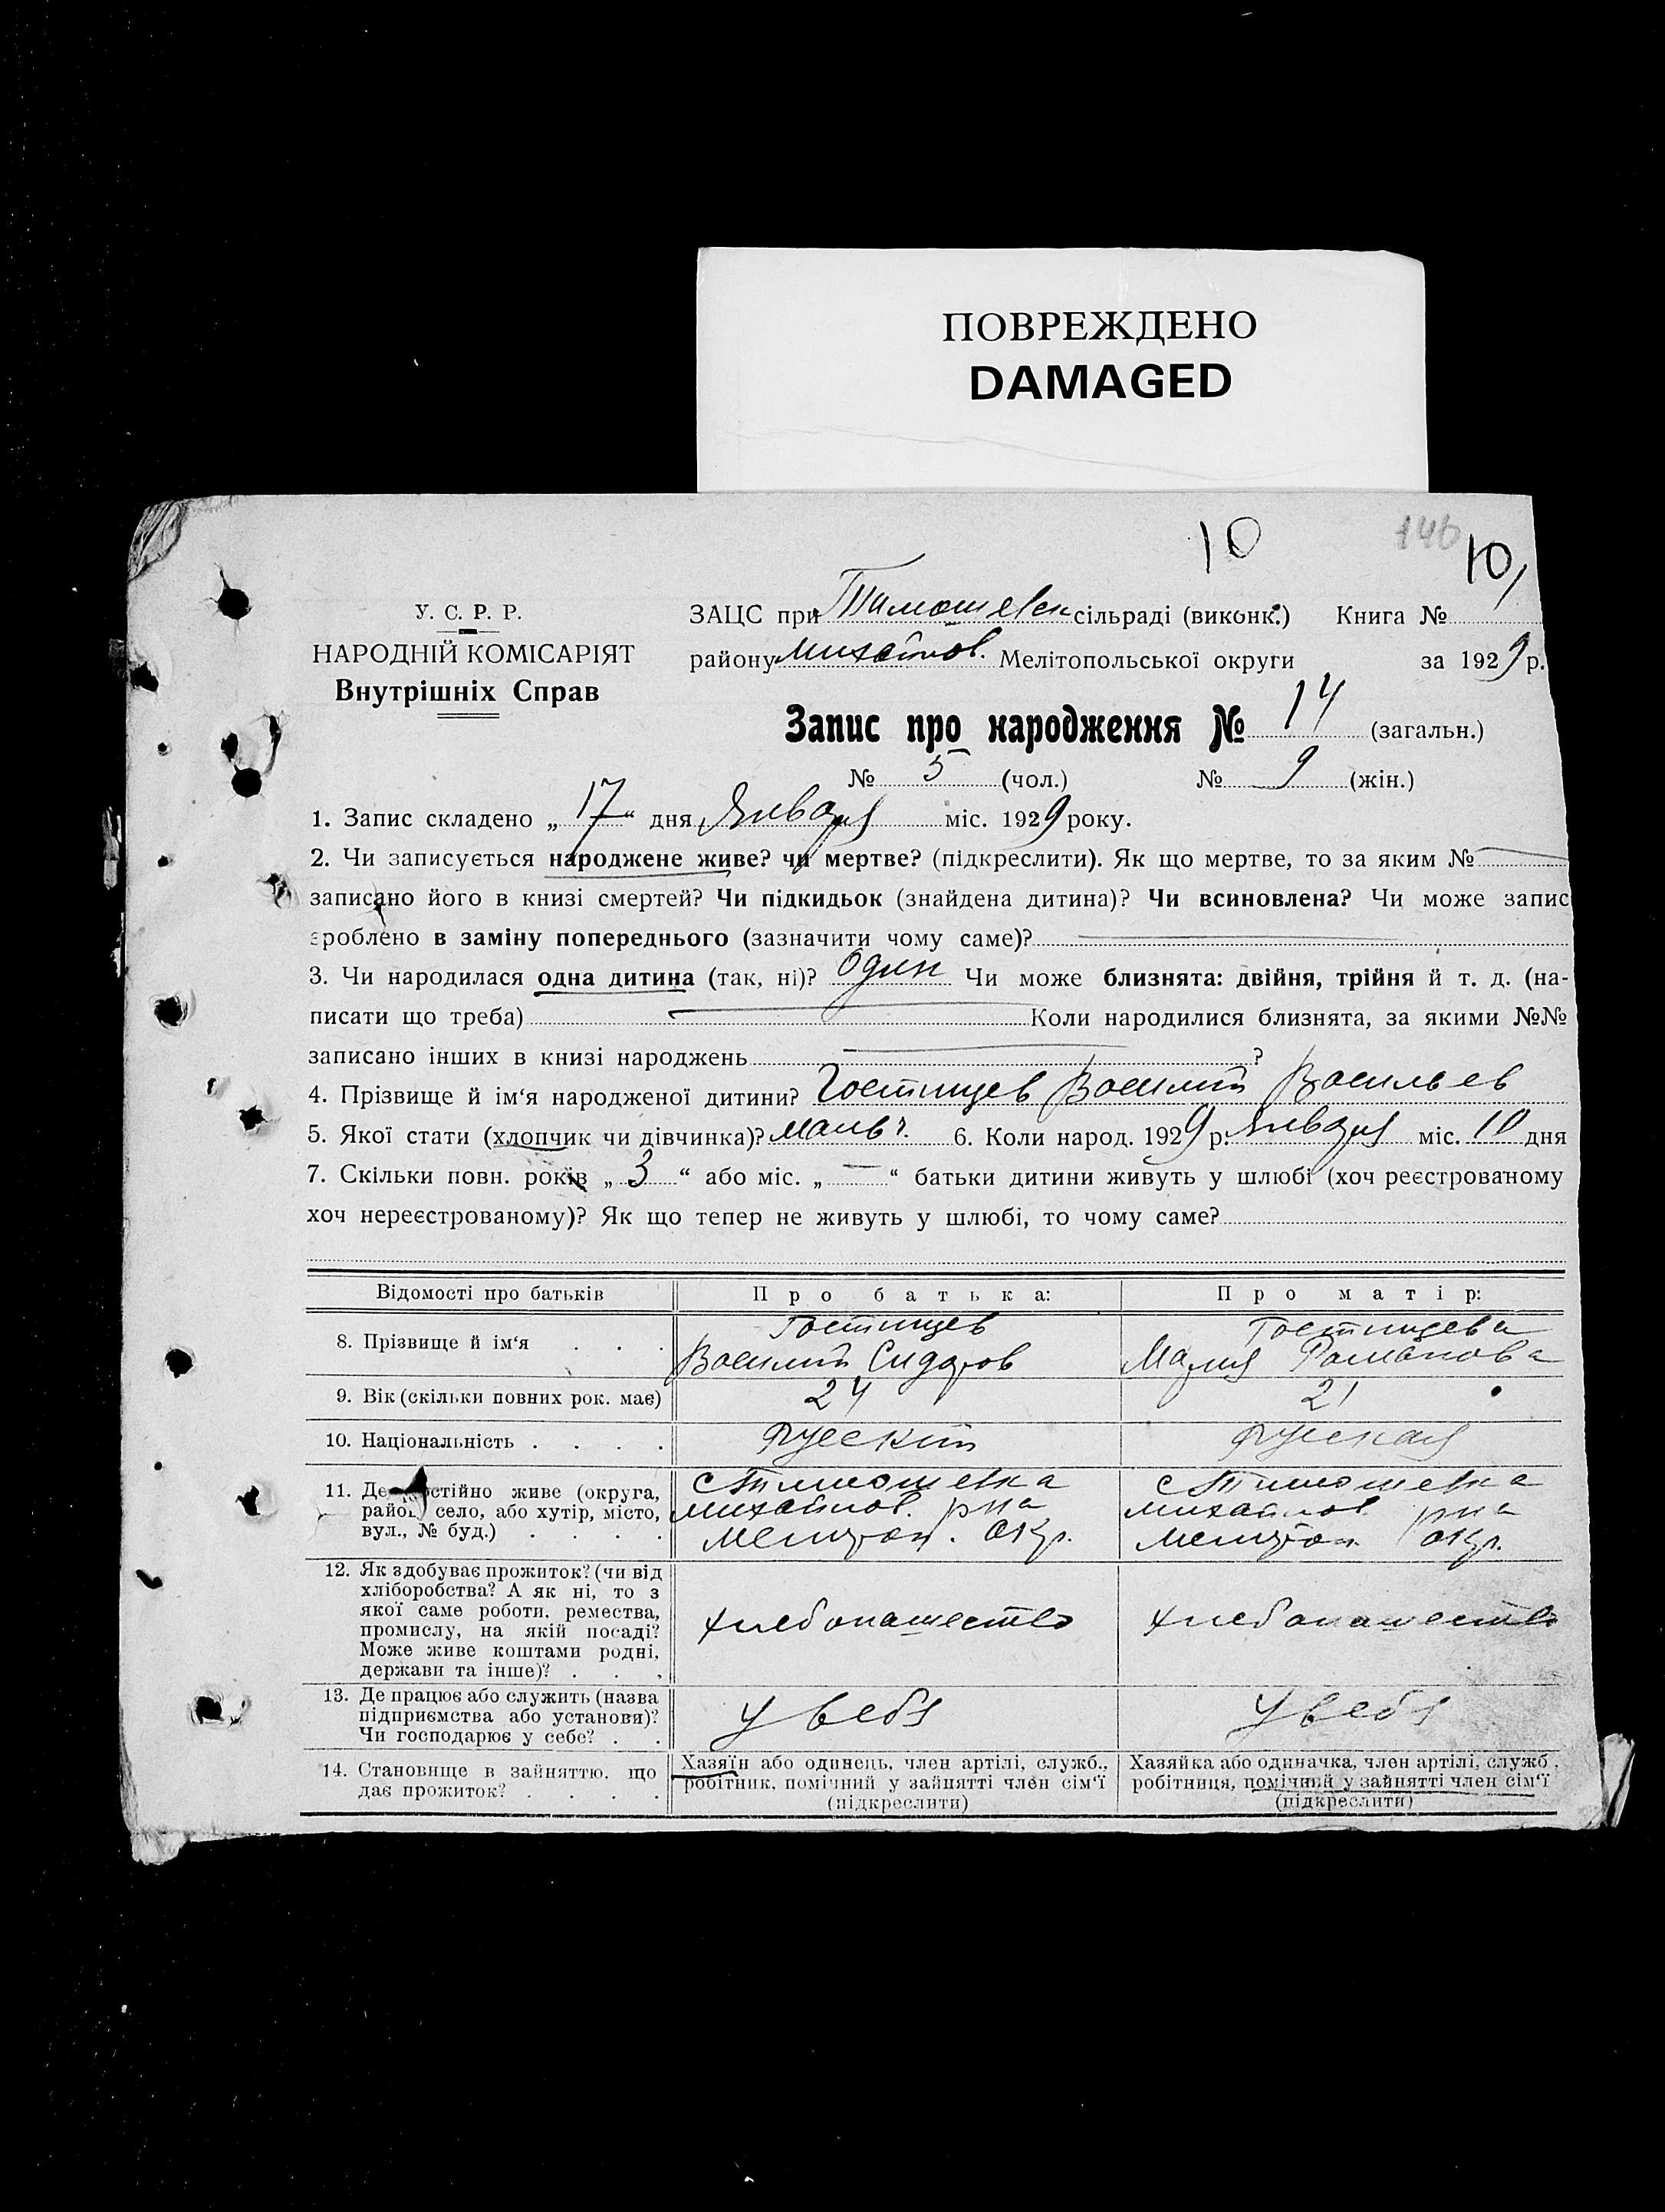 ПОВРЕЖДЕНО
DAMAGED
10
146
10
У. С. Р. Р.
НАРОДНІЙ КОМІСАРІЯТ
Внутрішніх Справ
ЗАЦС при Тимошевск сільраді (виконк.) Книга №
району Михайлов. Мелітопольської округи за 1929 р.
Запис про народження № 14 (загальн.)
№ 5 (чол.) № 9 (жін.)
1. Запис складено „ 17 “ дня Января міс. 1929 року.
2. Чи записується народжене живе? чи мертве? (підкреслити). Як що мертве, то за яким №
записано його в книзі смертей? Чи підкидьок (знайдена дитина)? Чи всиновлена? Чи може запис
зроблено в заміну попереднього (зазначити чому саме)?
3. Чи народилася одна дитина (так, ні)? Один Чи може близнята: двійня, трійня й т. д. (на-
писати що треба) Коли народилися близнята, за якими №№
записано інших в книзі народжень ?
4. Прізвище й ім‘я народженої дитини? Гостищев Василий Васильев
5. Якої стати (хлопчик чи дівчинка)? Мальч. 6. Коли народ. 1929 р. Января міс. 10 дня
7. Скільки повн. років „ 3 “ або міс. „ — “ батьки дитини живуть у шлюбі (хоч реєстрованому
хоч нереєстрованому)? Як що тепер не живуть у шлюбі, то чому саме?
Відомості про батьків Про батька: Про матір:
8. Прізвище й ім‘я . . . Гостищев Василий Сидоров Гостищева Мария Романова
9. Вік (скільки повних рок. має) 24 21
10. Національність . . . . Русский Русская
11. Де постійно живе (округа,
район, село, або хутір, місто,
вул., № буд.) . . . .
с Тимошевка
Михайлов. р-на
Мелитоп. окр.
с Тимошевка
Михайлов. р-на
Мелитоп. окр.
12. Як здобуває прожиток? (чи від
хліборобства? А як ні, то з
якої саме роботи, ремества,
промислу, на якій посаді?
Може живе коштами родні,
держави та інше)? . . .
хлебопашество
хлебопашество
13. Де працює або служить (назва
підприємства або установи)?
Чи господарює у себе? . .
У себя
У себя
14. Становище в зайняттю, що
дає прожиток? . . . .
Хазяїн або одинець, член артілі, служб.,
робітник, помічний у зайнятті член сім‘ї
(підкреслити)
Хазяйка або одиначка, член артілі, служб.,
робітниця, помічний у зайнятті член сім‘ї
(підкреслити)